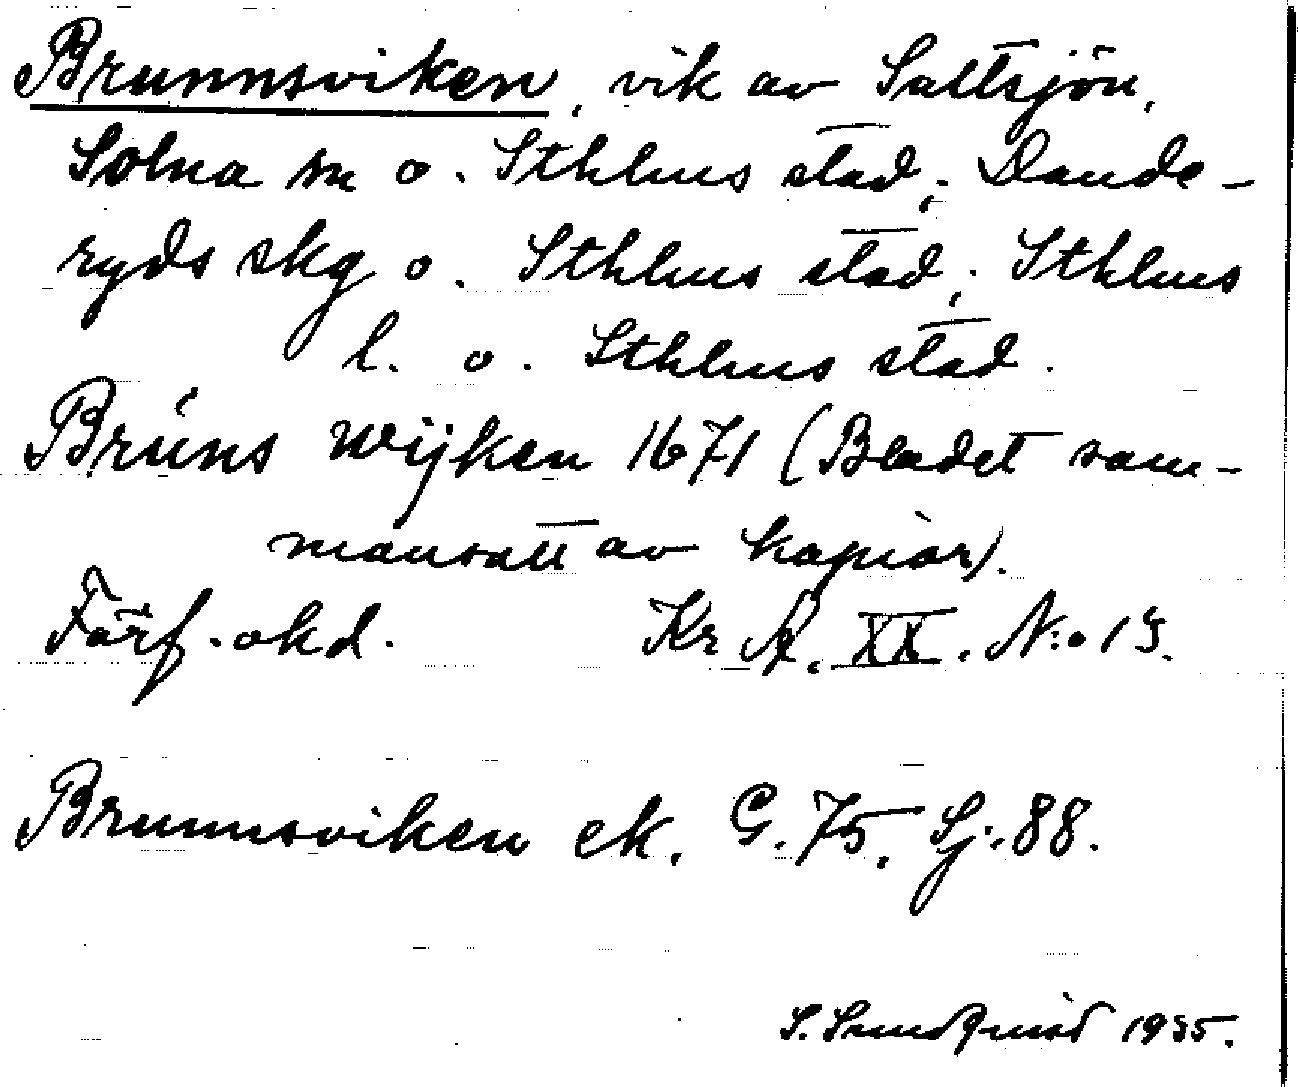 Brunnsviken, vik av Saltsjön,
Solna sn o. Sthlms stad; Dande-
ryds skg o. Sthlms stad; Sthlms
l. o. Sthlms stad.
Brúns Wijken 1671 (Bladet sam-
mansatt av kopior).
Förf. okd. Kr A. XX. N:o 15.
Brunnsviken ek. G. 75. Sj: 88.
S. Sundquist 1935.